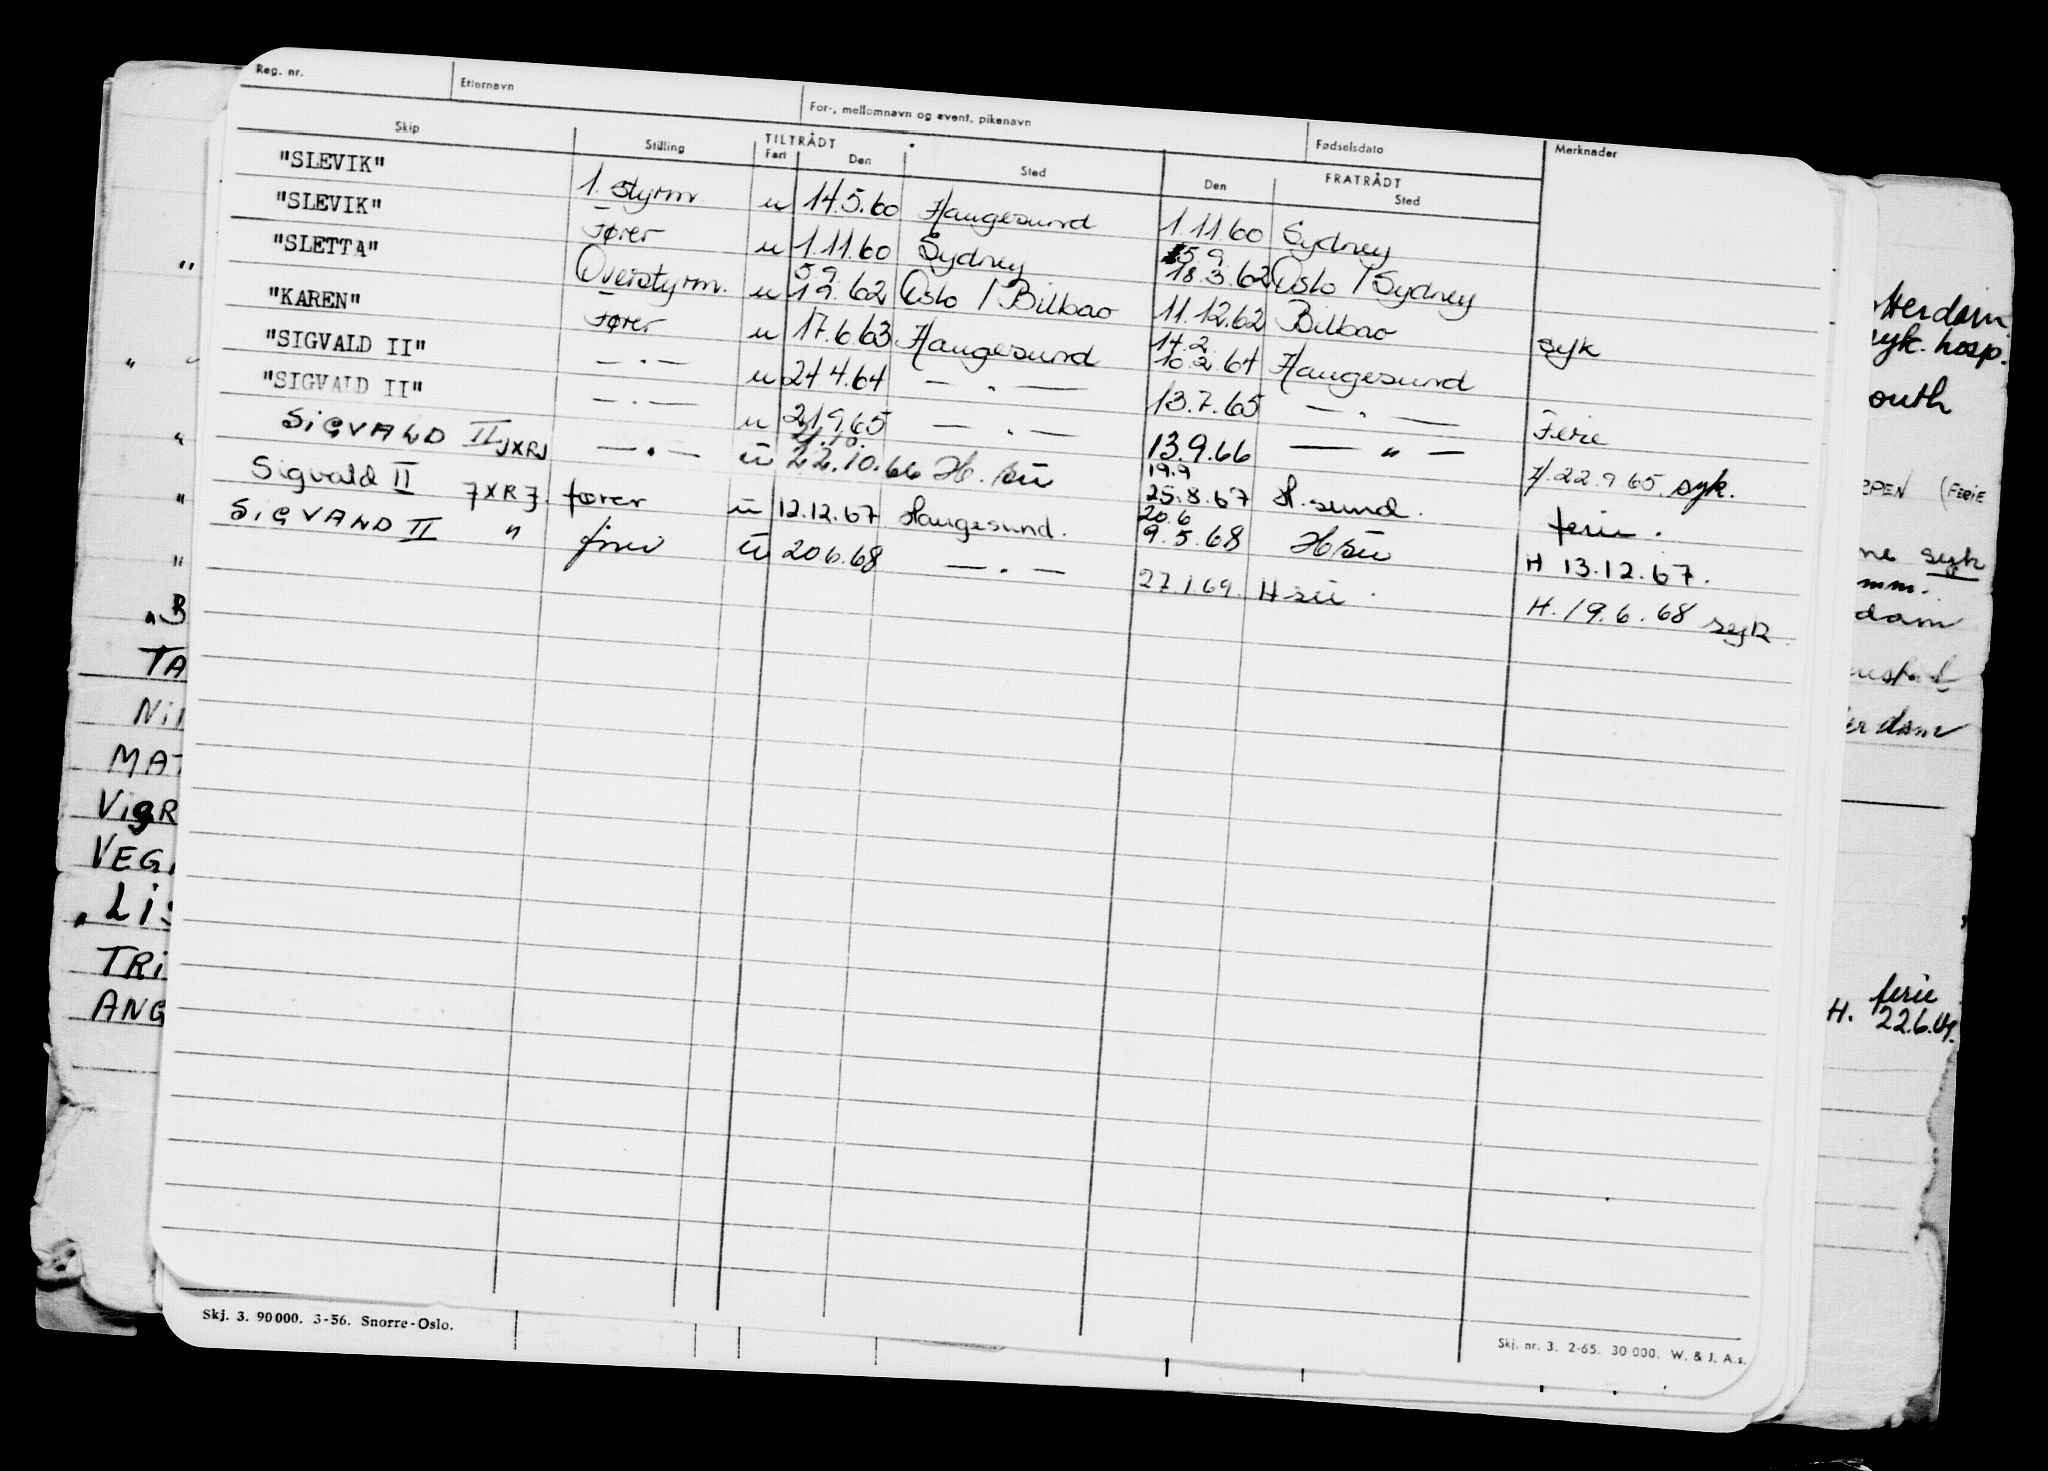 Reg. nr. Etternavn For-, mellomnavn og event. pikenavn Fødselsdato Merknader
Skip Stilling TILTRÅDT FRATRÅDT
Fart Den Sted Den Sted
"SLEVIK" 1. styrm. u 14.5.60 Haugesund 1.11.60 Sydney
"SLEVIK" Fører u 1.11.60 Sydney 18.3.62 Oslo / Sydney
"SLETTA" Overstyrm. u 5.9 19.62 Oslo / Bilbao 11.12.62 Bilbao syk
"KAREN" Fører u 17.6.63 Haugesund 14.2 10.2.64 Haugesund
"SIGVALD II" — " — u 24.4.64 — " — 13.7.65 — " — Ferie
"SIGVALD II" — " — u 21.9.65 — " — 13.9.66 — " — H. 22.9.65. syk.
SIGVALD II JXRJ — " — u 21.10. 22.10.66 H.su 19.9 25.8.67 H.sund. ferie.
Sigvald II JXRJ. fører u 12.12.67 Haugesund. 20.6 9.5.68 Hsu H 13.12.67.
SIGVALD II " fører u 20.6.68 — " — 27.1.69. Hsu H. 19.6.68 syk.
"
"
"
"
"
"B
TA
Ni
MAT
ViGR
VEG
"LIS
TRi
ANG
tterdam
syk. hosp.
outh
RPEN (FERIE
ne syk
mm.
dam
erdam
ferie
H. 22.6.
Skj. 3. 90000. 3-56. Snorre-Oslo.
Skj. nr. 3. 2-65. 30 000. W. & J. A.s.